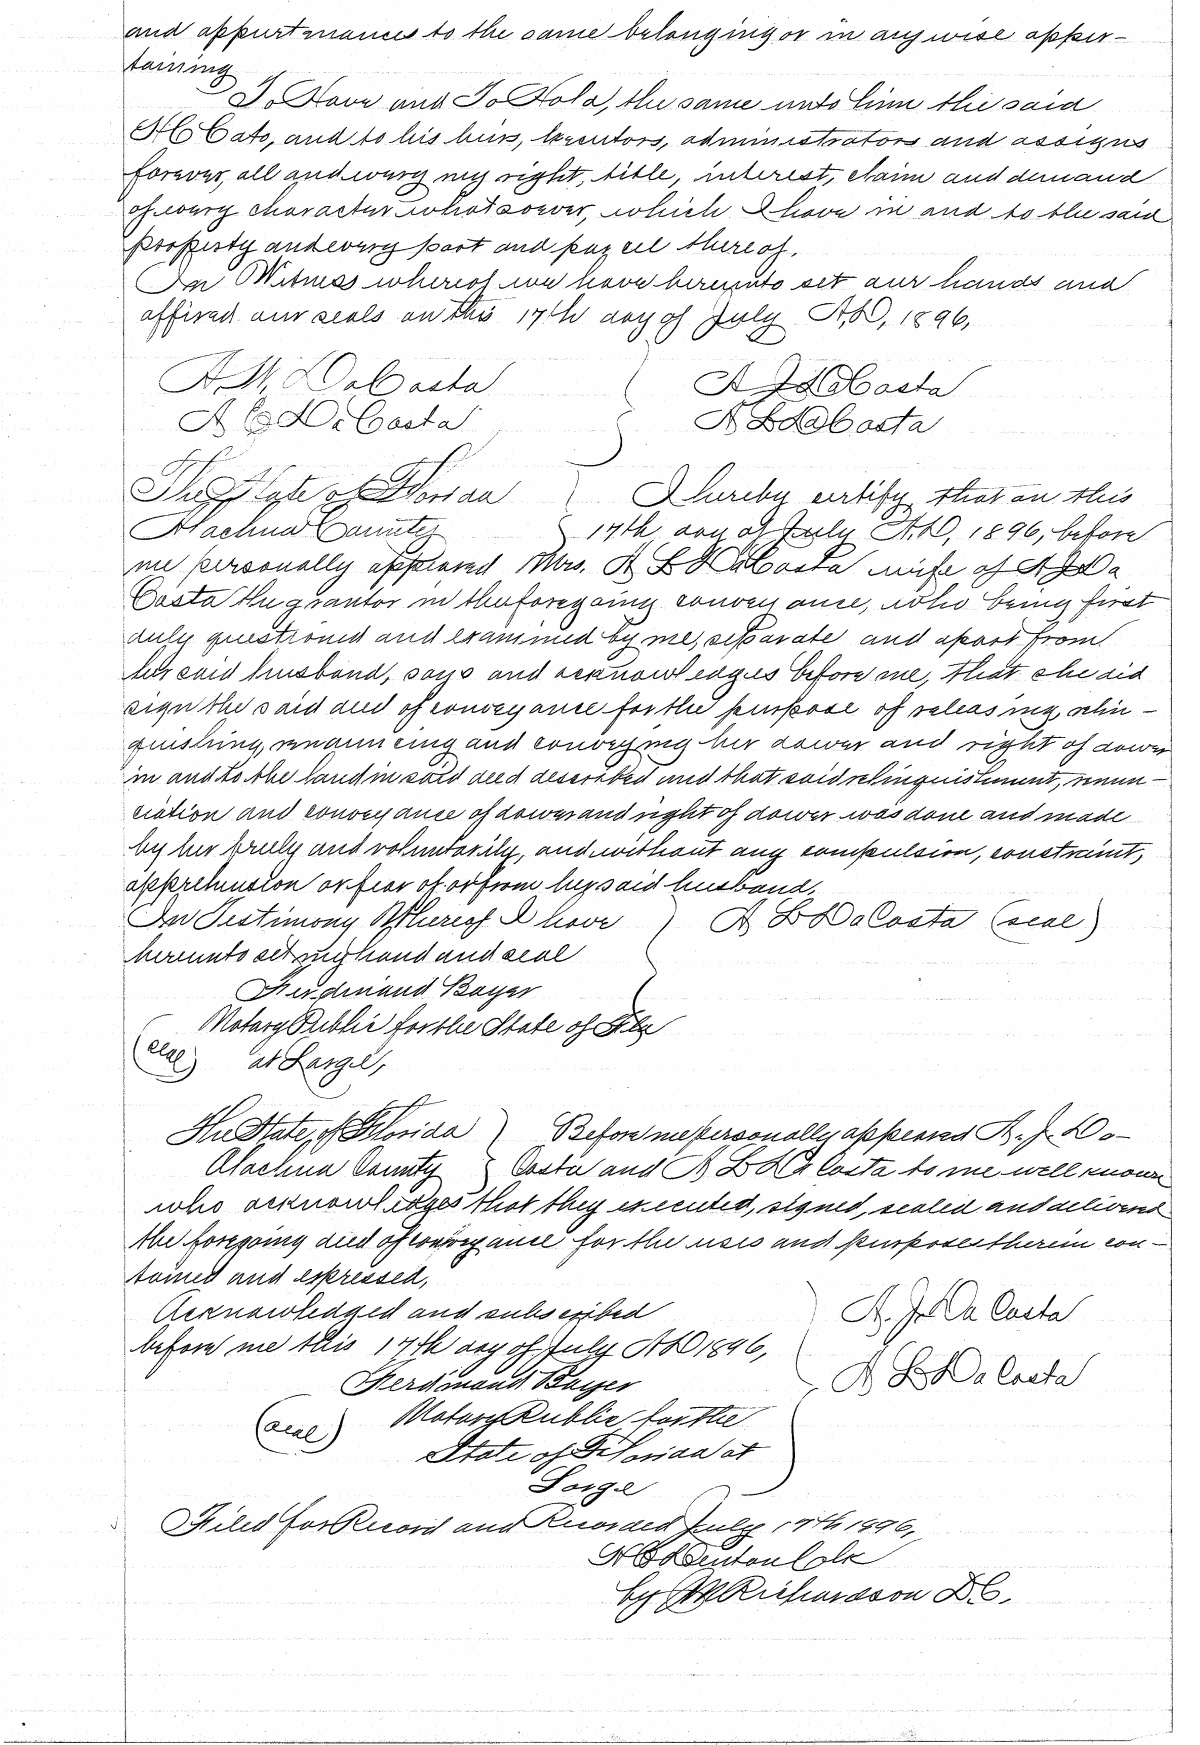 and appurtenances to the same belonging or in any wise apper-
taining
To Have and To Hold, the same unto him the said
H C Cato, and to his heirs, executors, administrators and assigns
forever, all and every my right, title, interest, claim and demand
of every character whatsoever, which I have in and to the said
property and every part and parcel thereof.
In Witness whereof we have hereunto set our hands and
affixed our seals on this 17th day of July A.D, 1896,
A. W, DaCosta
A J DaCosta
A C DaCosta
A L DaCosta
The State of Florida
Alachua County
I hereby certify, that on this
17th, day of July A.D, 1896, before
me personally appeared Mrs. A L DaCosta wife of A J Da
Costa the grantor in the foregoing conveyance, who being first
duly questioned and examined by me, separate and apart from
her said husband, says and acknowledges before me, that she did
sign the said deed of conveyance for the purpose of releasing, relin-
quishing, renouncing and conveying her dower and right of dower
in and to the land in said deed described and that said relinquishment, renun-
ciation and conveyance of dower and right of dower was done and made
by her freely and voluntarily, and without any compulsion, constraint,
apprehension or fear of or from her said husband.
In Testimony Whereof I have
A L DaCosta (seal)
hereunto set my hand and seal
Ferdinand Bayer
Notary Public for the State of Fla
(seal) at Large,
The State, of Florida
Alachua County
Before me personally appeared A. J. Da-
Costa and A L DaCosta to me well known
who acknowledges that they executed, signed, sealed and delivered
the foregoing deed of conveyance for the uses and purposes therein con-
tained and expressed,
Acknowledged and subscribed
A. J. Da Costa
before me this 17th day of July AD 1896,
A L Da Costa
Ferdinand Bayer
(seal) Notary Public for the
State of Florida at
Large
Filed for Record and Recorded July 17th 1896,
Denton Clk
by Richardson D.C.